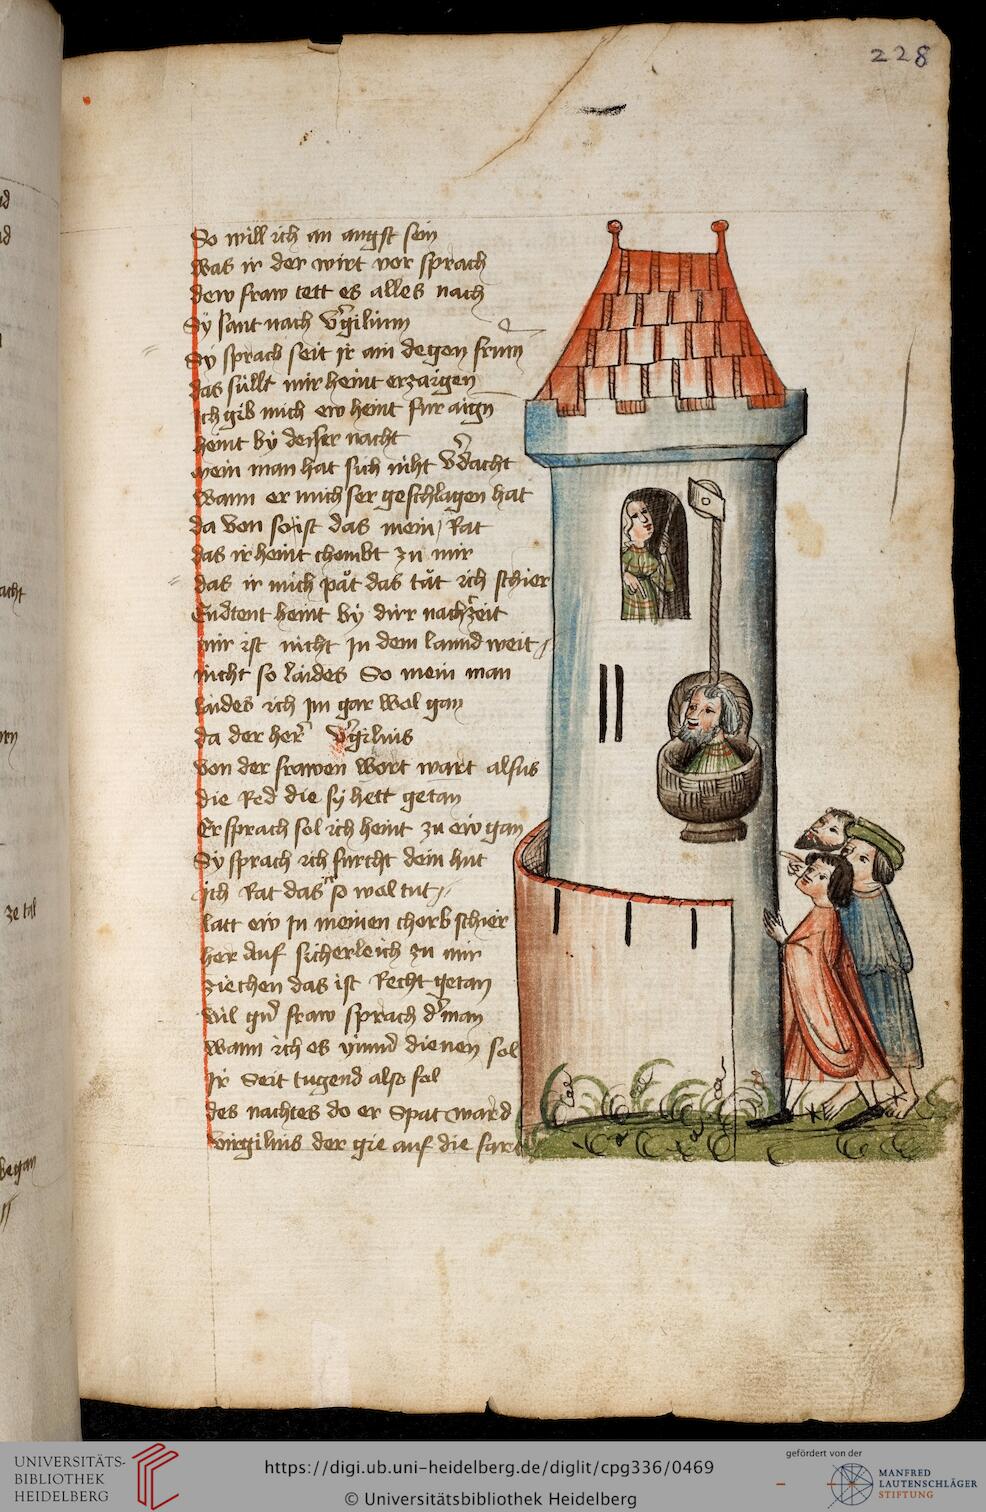 228
So will ich an angst sein
Was ir der wirt vor sprach
dew fraw tett es alles nach
Sy sant nach V'gilium
Sy sprach seit jr ain degen frum
das süllt mir heint erzaigen
Ich gib mich ew heint fur aign
heint by deiser nacht
mein man hat sich niht v'dacht
Wann er mich ser geschlagen hat
da von so ist das mein Rat
das ir heint chombt zu mir
das ir mich pät das tät ich schier
heint by dirr nachtzeit
mir ist nicht Jn dem lannd weit
nicht so laides So mein man
laides ich Jm gar wol gan
da der her V'gilius
von der frawen wort wart alsus
die Red die sy hett getan
Er sprach sol ich heint zu ew gan
Sy sprach ich furcht dein hut
Jch Rat das so wol tut
latt ew Jn meinen chorb schier
her auf sicherleich zu mir
ziechen das ist Recht getan
vil fraw sprach d' man
wann ich es dienen sol
Jr Seit tugend also fol
des nachtes do er Spat ward
virgilius der gie auf die fart
acht
ze tal
began
UNIVERSITÄTS-
BIBLIOTHEK
HEIDELBERG
https://digi.ub.uni-heidelberg.de/diglit/cpg336/0469
© Universitätsbibliothek Heidelberg
gefördert von der
MANFRED
LAUTENSCHLÄGER
STIFTUNG